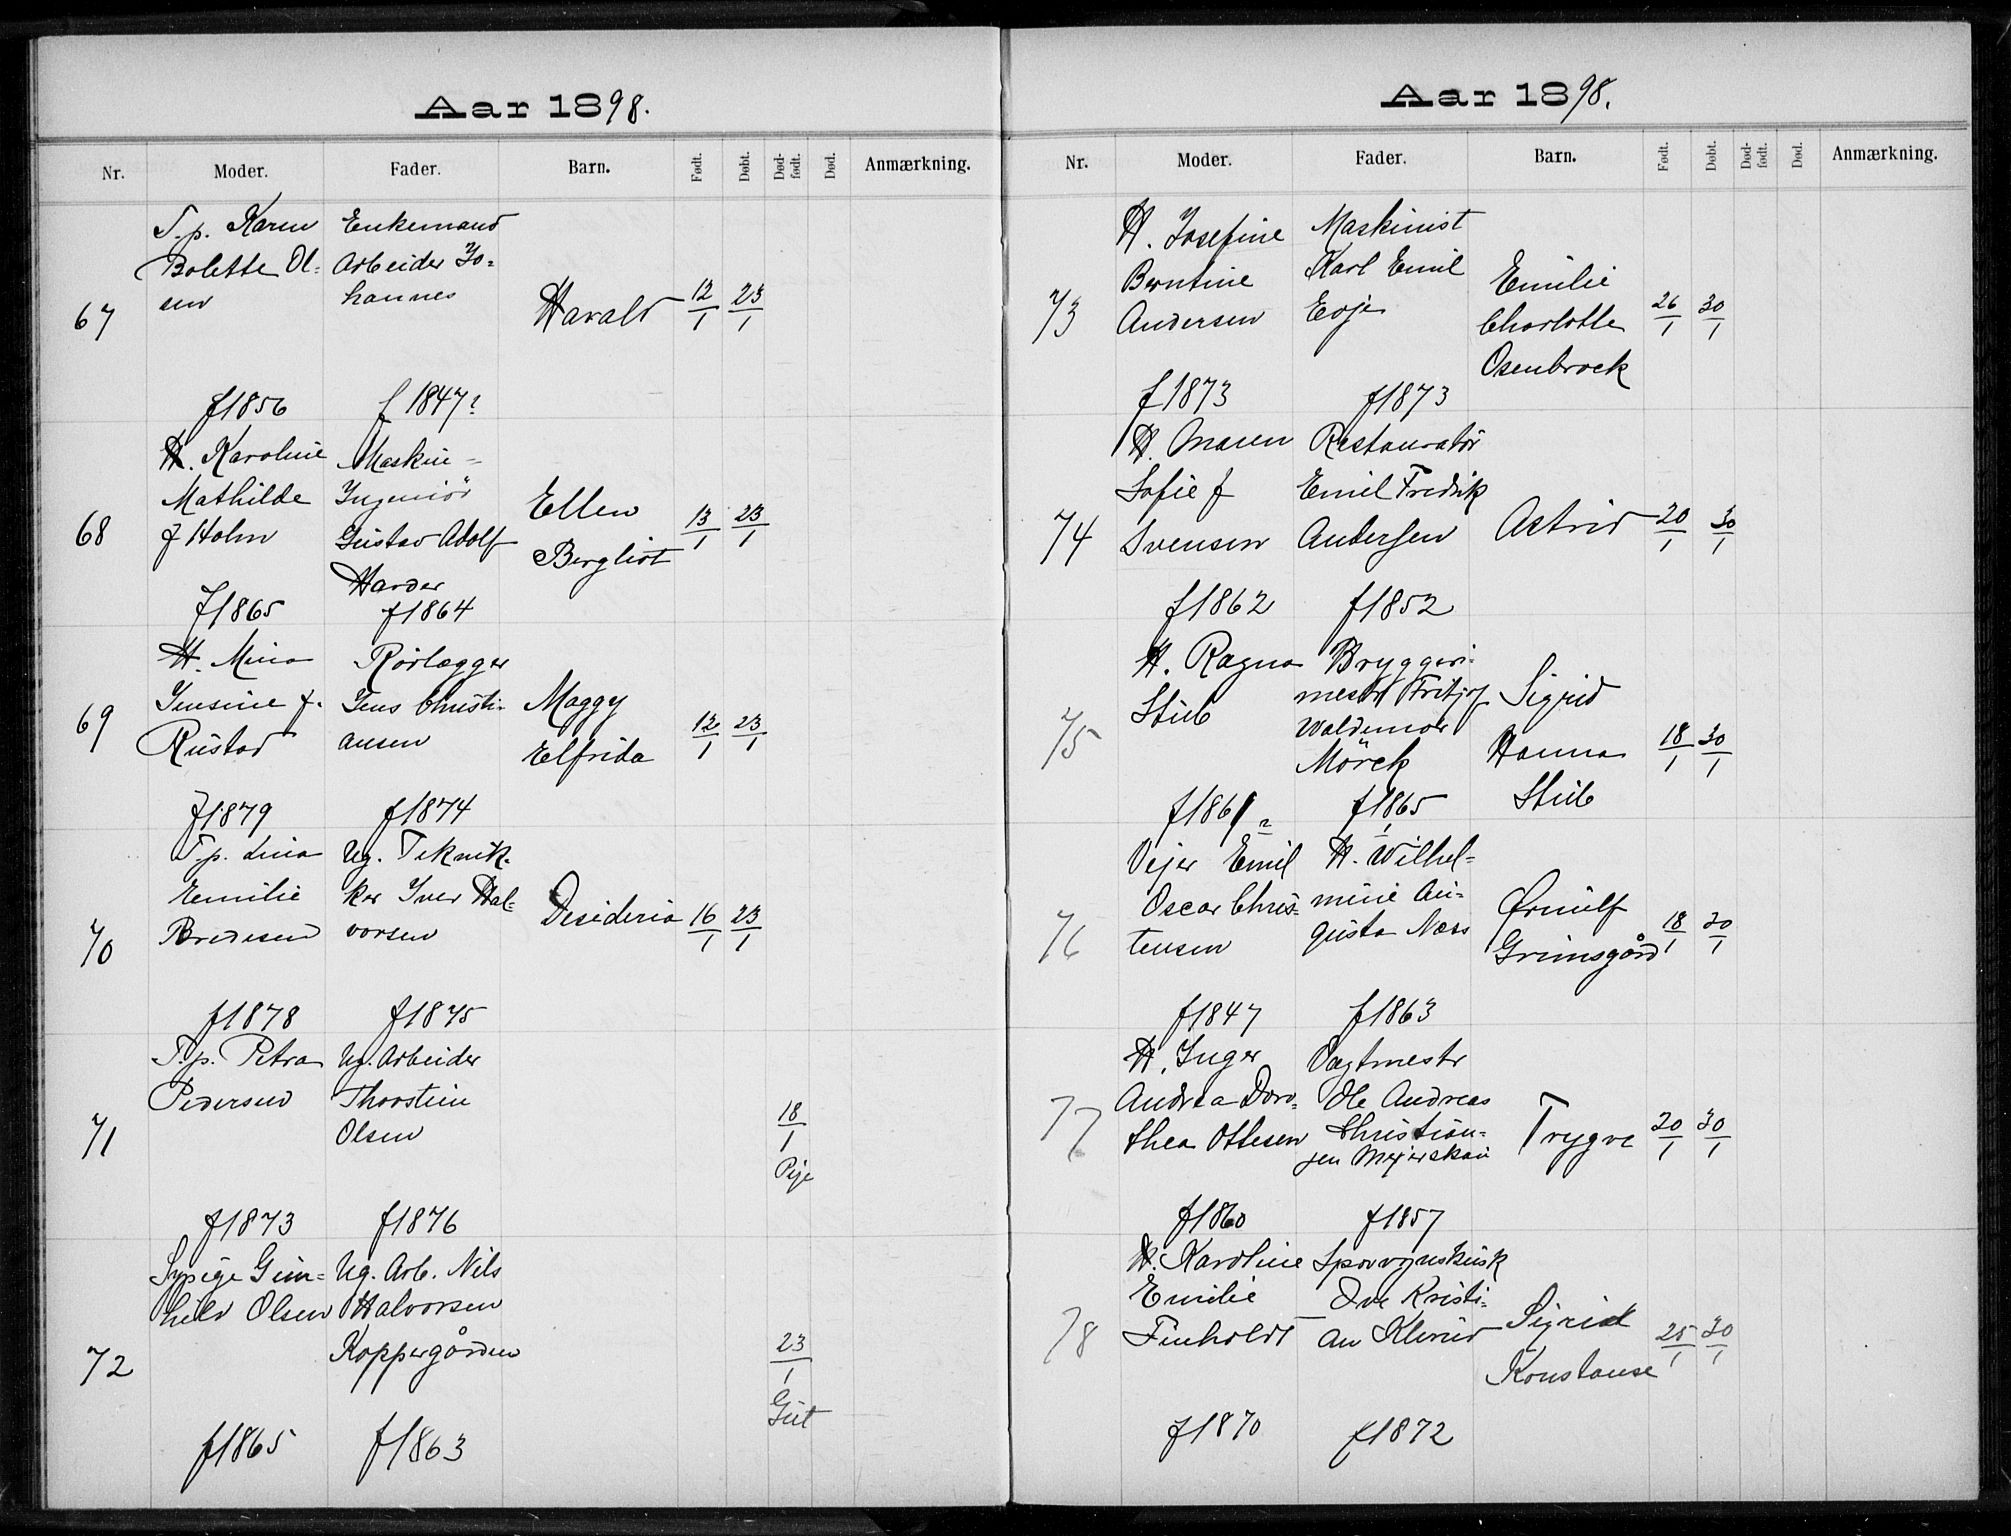 Aar 1898.
Nr. Moder. Fader. Barn. Født. Døbt. Død-født. Død. Anmærkning.
67
T.p. Karen
Bolette Ol-
sen
f 1856
Enkemand
Arbeider Jo-
hannes
f 1847?
Harald
12/1 23/1
68
H. Karoline
Mathilde
f Holm
f 1865
Maskin-
Ingeniör
Gustav Adolf
Harder
f 1864
Ellen
Bergliot
13/1 23/1
69
H. Mina
Jensine f.
Rustad
f 1879
Rörlægger
Jens Christi-
ansen
f 1874
Maggy
Elfrida
12/1 23/1
70
T.p. Lina
Emilie
Bredesen
f 1878
Ug. Teknik-
ker Iver Hal-
vorsen
f 1875
Desideria
16/1 23/1
71
T.p. Petra
Pedersen
f 1873
Ug. Arbeider
Thorstein
Olsen
f 1876
18/1
Pige
72
Sypige Gun-
hild Olsen
f 1865
Ug. Arb. Nils
Halvorsen
Koppergården
f 1863
23/1
Gut
Aar 1898.
Nr. Moder. Fader. Barn. Født. Døbt. Død-født. Død. Anmærkning.
73
H. Josefine
Berntine
Andersen
f 1873
Maskinist
Karl Emil
Evje
f 1873
Emilie
Charlotte
Osenbrock
26/1 30/1
74
H. Maren
Sofie f
Svensen
f 1862
Restauratör
Emil Fredrik
Andersen
f 1852
Astrid
20/1 30/1
75
H. Ragna
Stub
f 1861
Bryggeri-
mestr Fritjof
Waldemar
Mörck
f 1865
Sigrid
Hanna
Stub
18/1 30/1
76
Vejer Emil
Oscar Chris-
tensen
f 1847
H. Wilhel-
mine Au-
gusta Næss
f 1863
Ørnulf
Grimsgård
18/1 30/1
77
H. Inger
Andrea Doro-
thea Ottesen
f 1860
Vagtmestr
Ole Andreas
Christian-
sen Mejerskau
f 1857
Trygve
20/1 30/1
78
H. Karoline
Emilie
Finholdt
f 1870
Sporvognskusk
Ove Kristi-
an Klerud
f 1872
Sigrid
Konstanse
25/1 30/1